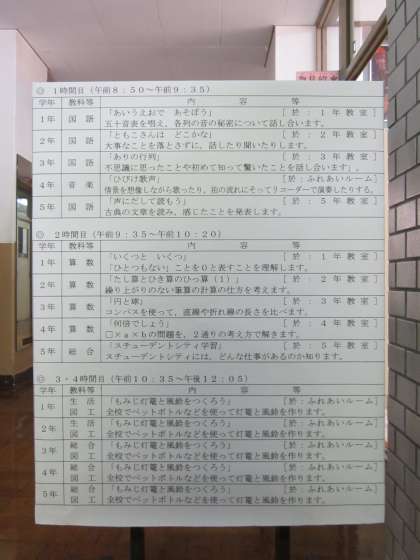 ◎ 1時間目（午前8：50〜午前9：35）
学年 教科等 内容等
1年 国語 「あいうえおで あそぼう」 [於：1年教室]
五十音表を唱え、各列の音の秘密について話し合います。
2年 国語 「ともこさんは どこかな」 [於：2年教室]
大事なことを落とさずに、話したり聞いたりします。
3年 国語 「ありの行列」 [於：3年教室]
不思議に思ったことや初めて知って驚いたことを話し合います。
4年 音楽 「ひびけ歌声」 [於：ふれあいルーム]
情景を想像しながら歌ったり、拍の流れにそってリコーダーで演奏したりする。
5年 国語 「声にだして読もう」 [於：5年教室]
古典の文章を読み、感じたことを発表します。
◎ 2時間目（午前9：35〜午前10：20）
学年 教科等 内容等
1年 算数 「いくつと いくつ」 [於：1年教室]
「ひとつもない」ことを0と表すことを理解します。
2年 算数 「たし算とひき算のひっ算（1）」 [於：2年教室]
繰り上がりのない筆算の計算の仕方を考えます。
3年 算数 「円と球」 [於：3年教室]
コンパスを使って、直線や折れ線の長さを比べます。
4年 算数 「何倍でしょう」 [於：4年教室]
□×a×bの問題を、2通りの考え方で解きます。
5年 総合 「スチューデントシティ学習」 [於：5年教室]
スチューデントシティには、どんな仕事があるのか知ります。
◎ 3・4時間目（午前10：35〜午後12：05）
学年 教科等 内容等
1年 生活 「もみじ灯篭と風鈴をつくろう」 [於：ふれあいルーム]
図工 全校でペットボトルなどを使って灯篭と風鈴を作ります。
2年 生活 「もみじ灯篭と風鈴をつくろう」 [於：ふれあいルーム]
図工 全校でペットボトルなどを使って灯篭と風鈴を作ります。
3年 総合 「もみじ灯篭と風鈴をつくろう」 [於：ふれあいルーム]
図工 全校でペットボトルなどを使って灯篭と風鈴を作ります。
4年 総合 「もみじ灯篭と風鈴をつくろう」 [於：ふれあいルーム]
図工 全校でペットボトルなどを使って灯篭と風鈴を作ります。
5年 総合 「もみじ灯篭と風鈴をつくろう」 [於：ふれあいルーム]
図工 全校でペットボトルなどを使って灯篭と風鈴を作ります。